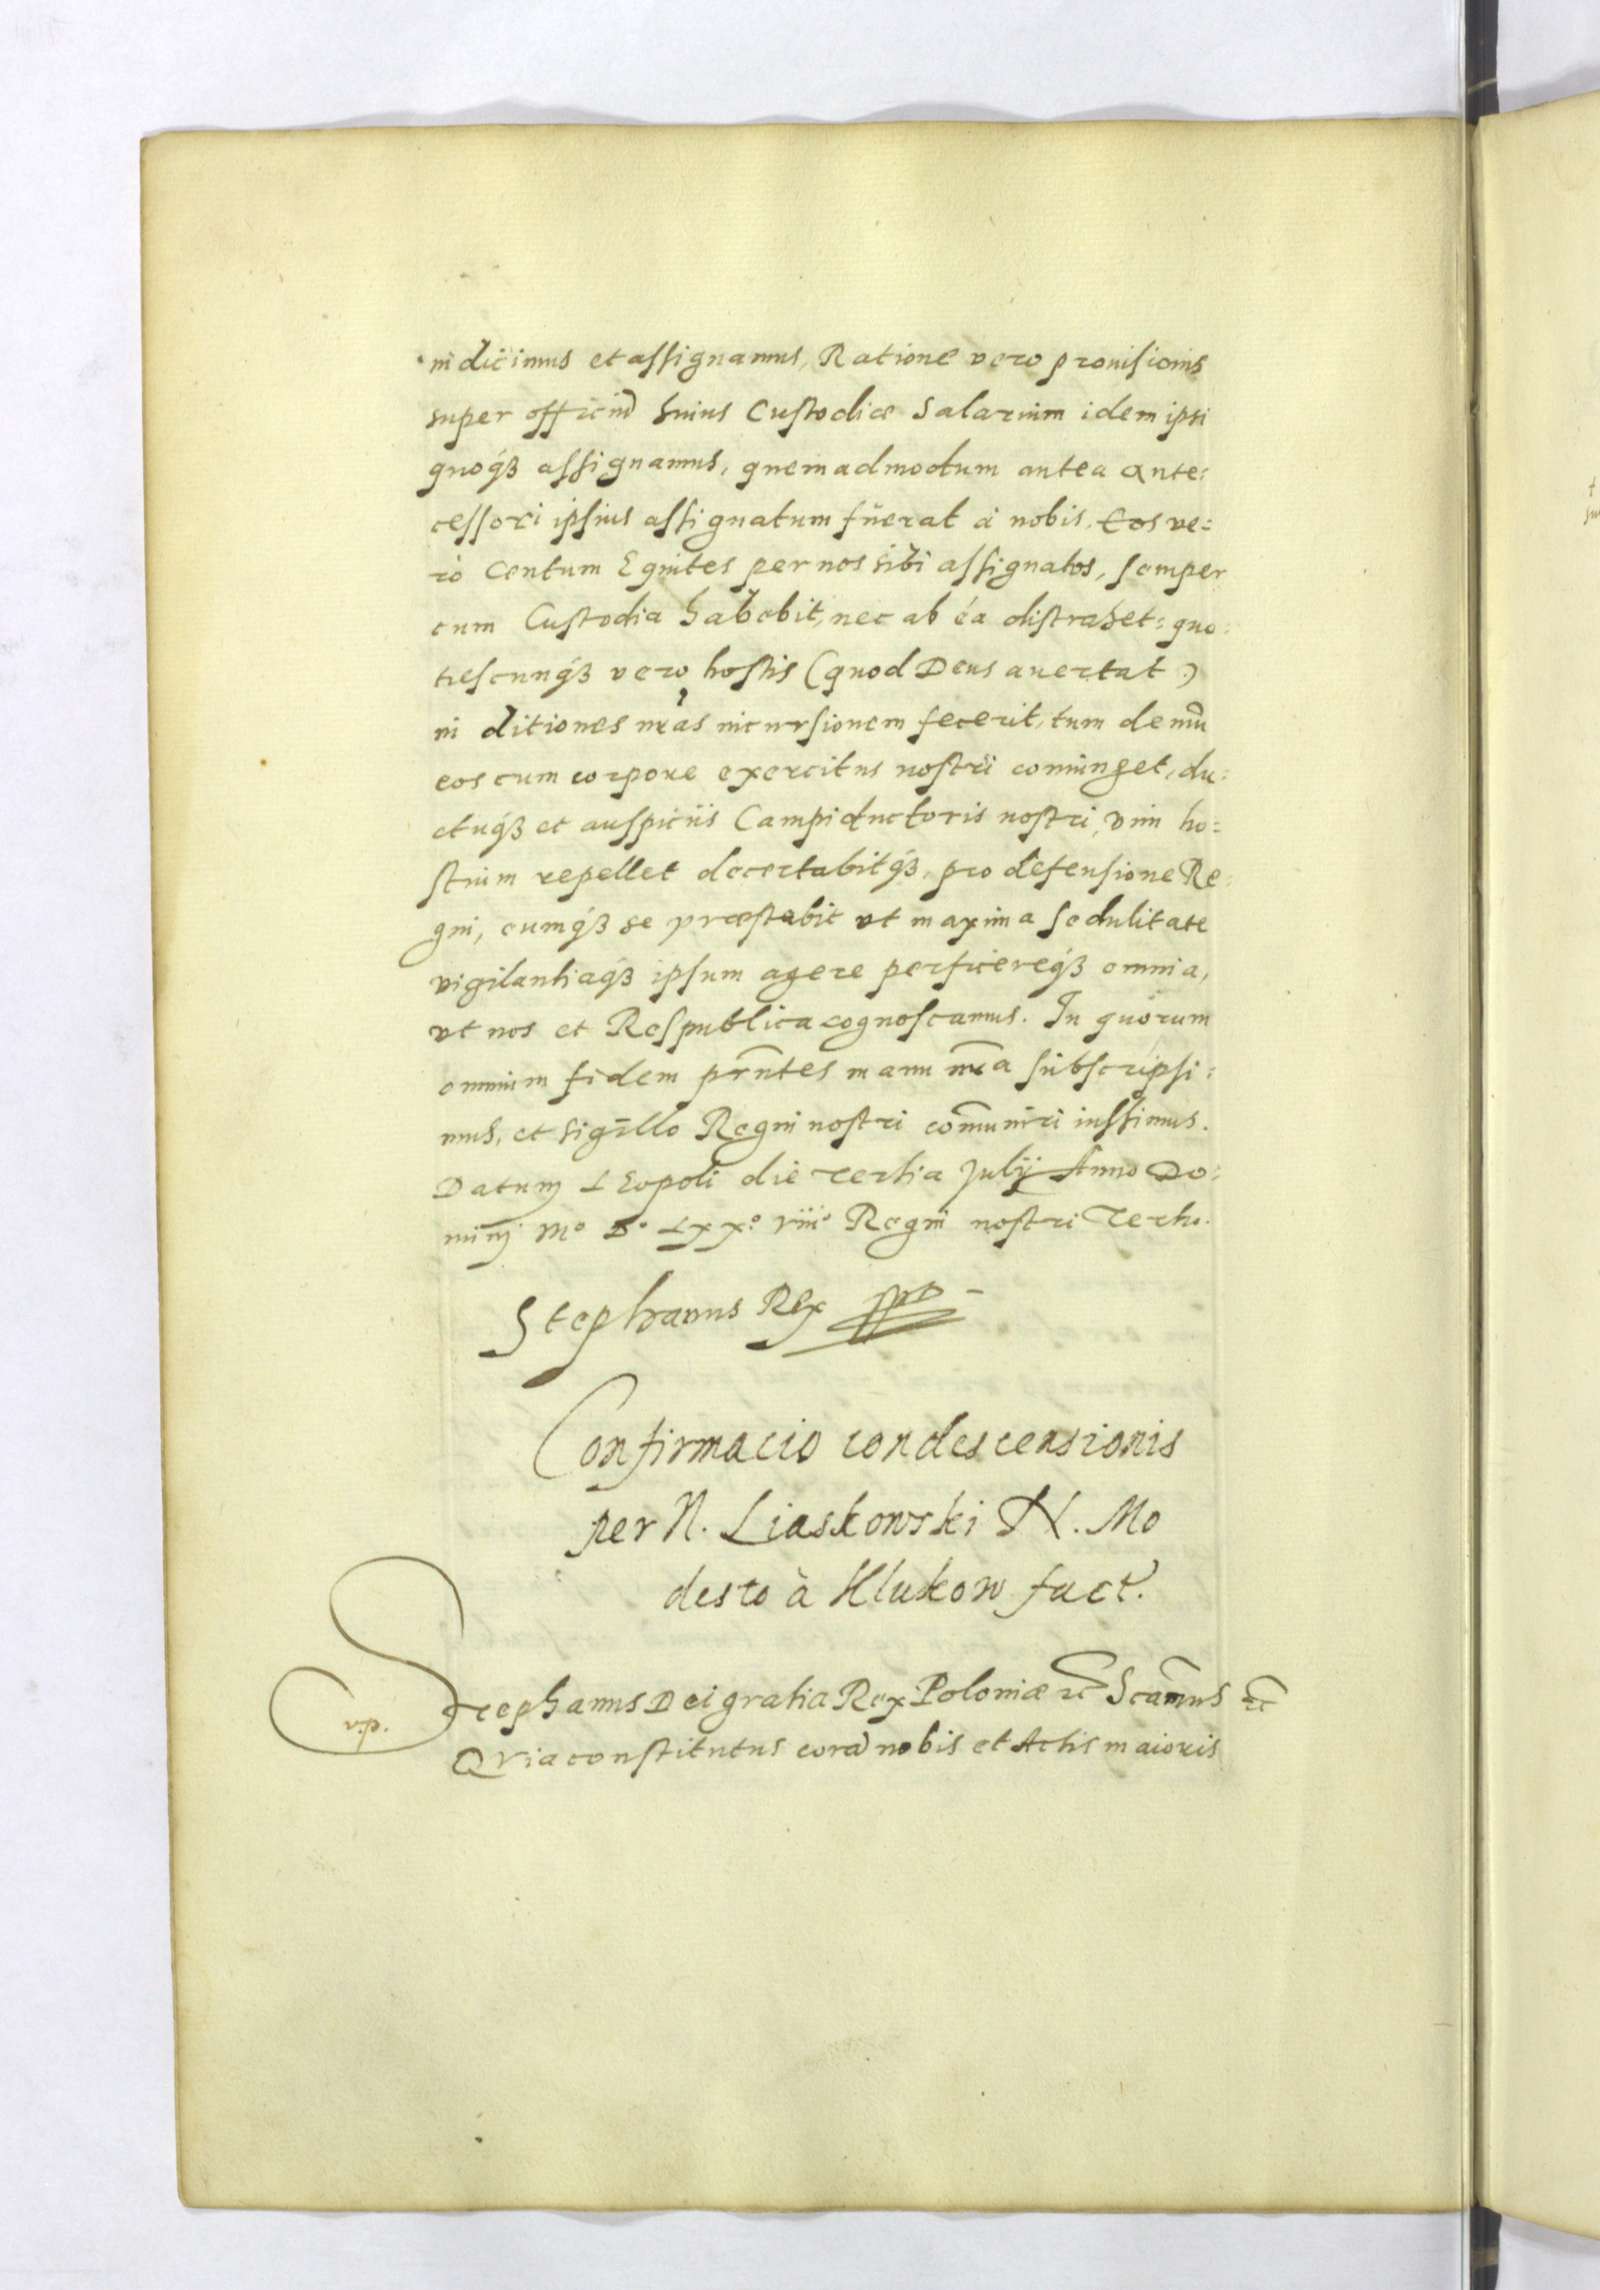 indicimus et assignamus, Ratione vero prouisionis
super officiũ huius Custodiæ Salarium idem ipsi
quoq́ꝫ assignamus, quemadmodum antea Ante:
cessori ipsius assignatum fuerat à nobis. Eos ve:
rò Centum Equites per nos sibi assignatos, semper
cum Custodia habebit, nec ab éa distrahet: quo:
tiescunq́ꝫ vero hostis (quod Deus auertat)
in ditiones nr̃as incursionem fecerit, tum demũ
eos cum corpore exercitus nostri coniunget, du:
ctuq́ꝫ et auspiciis Campiductoris nostri, vim ho:
stium repellet decertabitq́ꝫ, pro defensione Re:
gni, eumq́ꝫ se præstabit vt maxima sedulitate
vigilantiaq́ꝫ ipsum agere perficereq́ꝫ omnia,
vt nos et Respublica cognoscamus. In quorum
omnium fidem pr̃ntes manu nr̃a subscripsi:
mus, et sigillo Regni nostri com̃uniri iussimus.
Datum LEopoli die Tertia Julij Anno Do:
mini Mº Dº LXXº viiiº Regni nostri Tertio.
Stephanus Rex
Confirmacio condescensionis
per N. Liaskowski N. Mo
desto à Hlukow fact.
Stephanus Dei gratia Rex Poloniæ ꝛc̃ Scam̃us ꝛc̃
v.p.
QVia constitutus corã nobis et Actis maioris